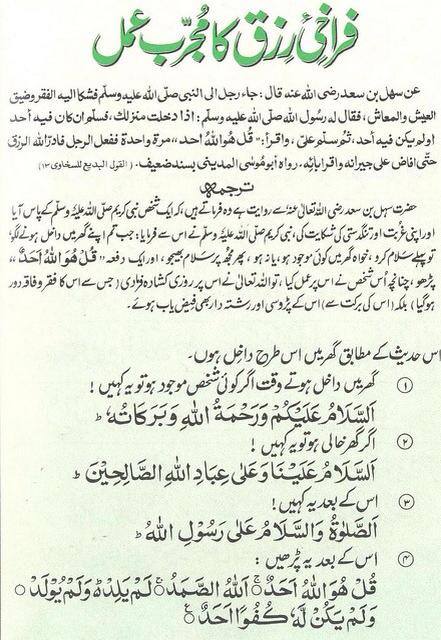 فراخیٔ رزق کا مُجرّب عمل
عن سهل بن سعد رضی الله عنه قال: جاء رجل الی النبی صلّی الله علیه وسلّم فشکا الیه الفقر وضیق
العیش والمعاش، فقال له رسول الله صلّی الله علیه وسلّم: اذا دخلت منزلك، فسلّم ان کان فیه احد
اولم یکن فیه أحد، ثم سلّم علیّ، واقرأ: "قُلْ هُوَ اللهُ اَحد" مرة واحدة ففعل الرجل فادرّ الله الرزق
حتّی افاض علی جیرانه واقربائه۔ رواه ابو موسی المدینی بسند ضعیف۔ (القول البدیع للسخاوی ۱۳)
ترجمہ
حضرت سہل بن سعد رضی اللہ تعالیٰ عنہ سے روایت ہے وہ فرماتے ہیں، کہ ایک شخص نبی کریم صلی اللہ علیہ وسلم کے پاس آیا
اور اپنی غربت اور تنگدستی کی شکایت کی، نبی کریم صلی اللہ علیہ وسلم نے اس سے فرمایا: جب تم اپنے گھر میں داخل ہونے لگو،
تو پہلے سلام کرو، خواہ گھر میں کوئی موجود ہو، یا نہ ہو، پھر مجھ پر سلام بھیجو، اور ایک دفعہ "قُلْ هُوَ اللهُ اَحَدٌ"
پڑھو، چنانچہ اُس شخص نے اس پر عمل کیا، تو اللہ تعالیٰ نے اس پر روزی کشادہ فرمادی (جس سے اس کا فقر و فاقہ دور
ہوگیا) بلکہ (اس کی برکت سے) اس کے پڑوسی اور رشتہ دار بھی فیض یاب ہوئے۔
اس حدیث کے مطابق گھر میں اس طرح داخل ہوں۔
① گھر میں داخل ہوتے وقت اگر کوئی شخص موجود ہو تو یہ کہیں!
اَلسَّلَامُ عَلَیْکُمْ وَرَحْمَةُ اللهِ وَبَرَکَاتُهٗ ط
② اگر گھر خالی ہو تو یہ کہیں!
اَلسَّلَامُ عَلَیْنَا وَعَلٰی عِبَادِ اللهِ الصَّالِحِیْنَ ط
③ اس کے بعد یہ کہیں!
اَلصَّلٰوةُ وَالسَّلَامُ عَلٰی رَسُوْلِ اللهِ ط
④ اس کے بعد یہ پڑھیں:
قُلْ هُوَ اللهُ اَحَدٌ ۝ اَللهُ الصَّمَدُ ۝ لَمْ یَلِدْ ۝ وَلَمْ یُوْلَدْ ۝
وَلَمْ یَکُنْ لَّهٗ کُفُوًا اَحَدٌ ۝